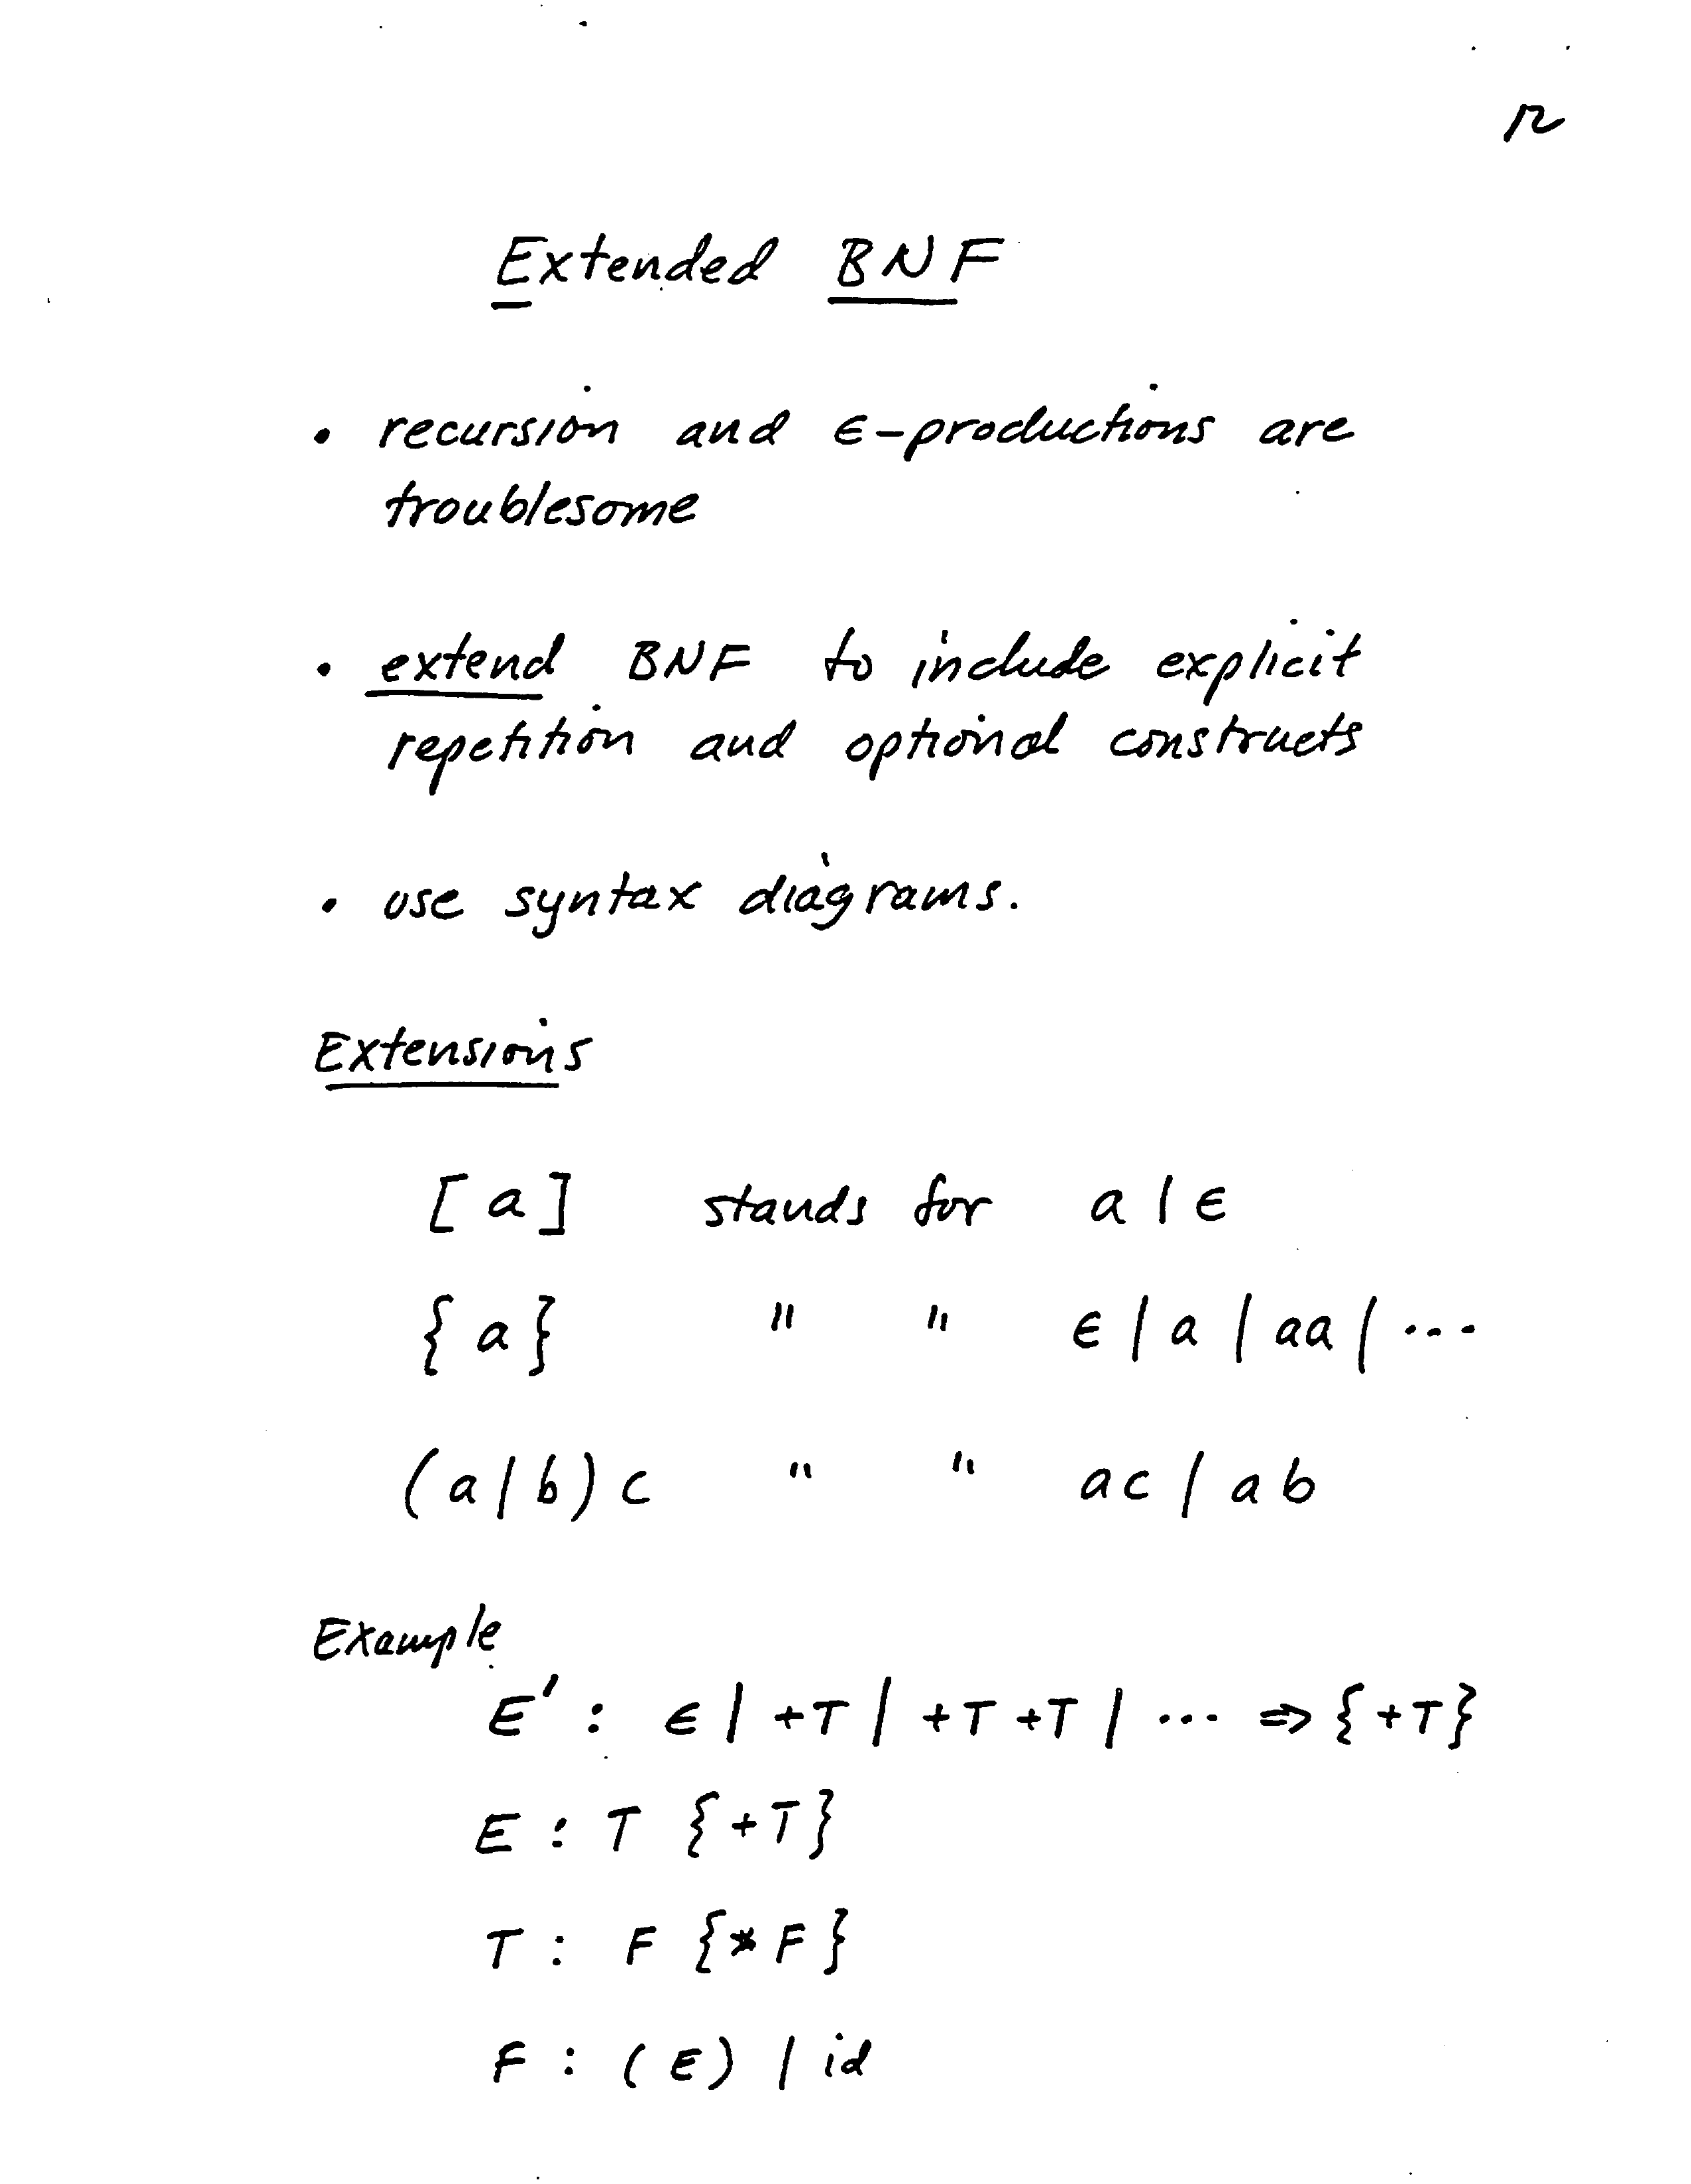 Extended BNF
• recursion and ϵ-productions are
troublesome
• extend BNF to include explicit
repetition and optional constructs
• use syntax diagrams.
Extensions
[a] stands for a | ϵ
{a} " " ϵ | a | aa | ...
(a|b)c " " ac | ab
Example
E' : ϵ | +T | +T +T | ... ⇒ {+T}
E : T {+T}
T : F {*F}
F : (E) | id